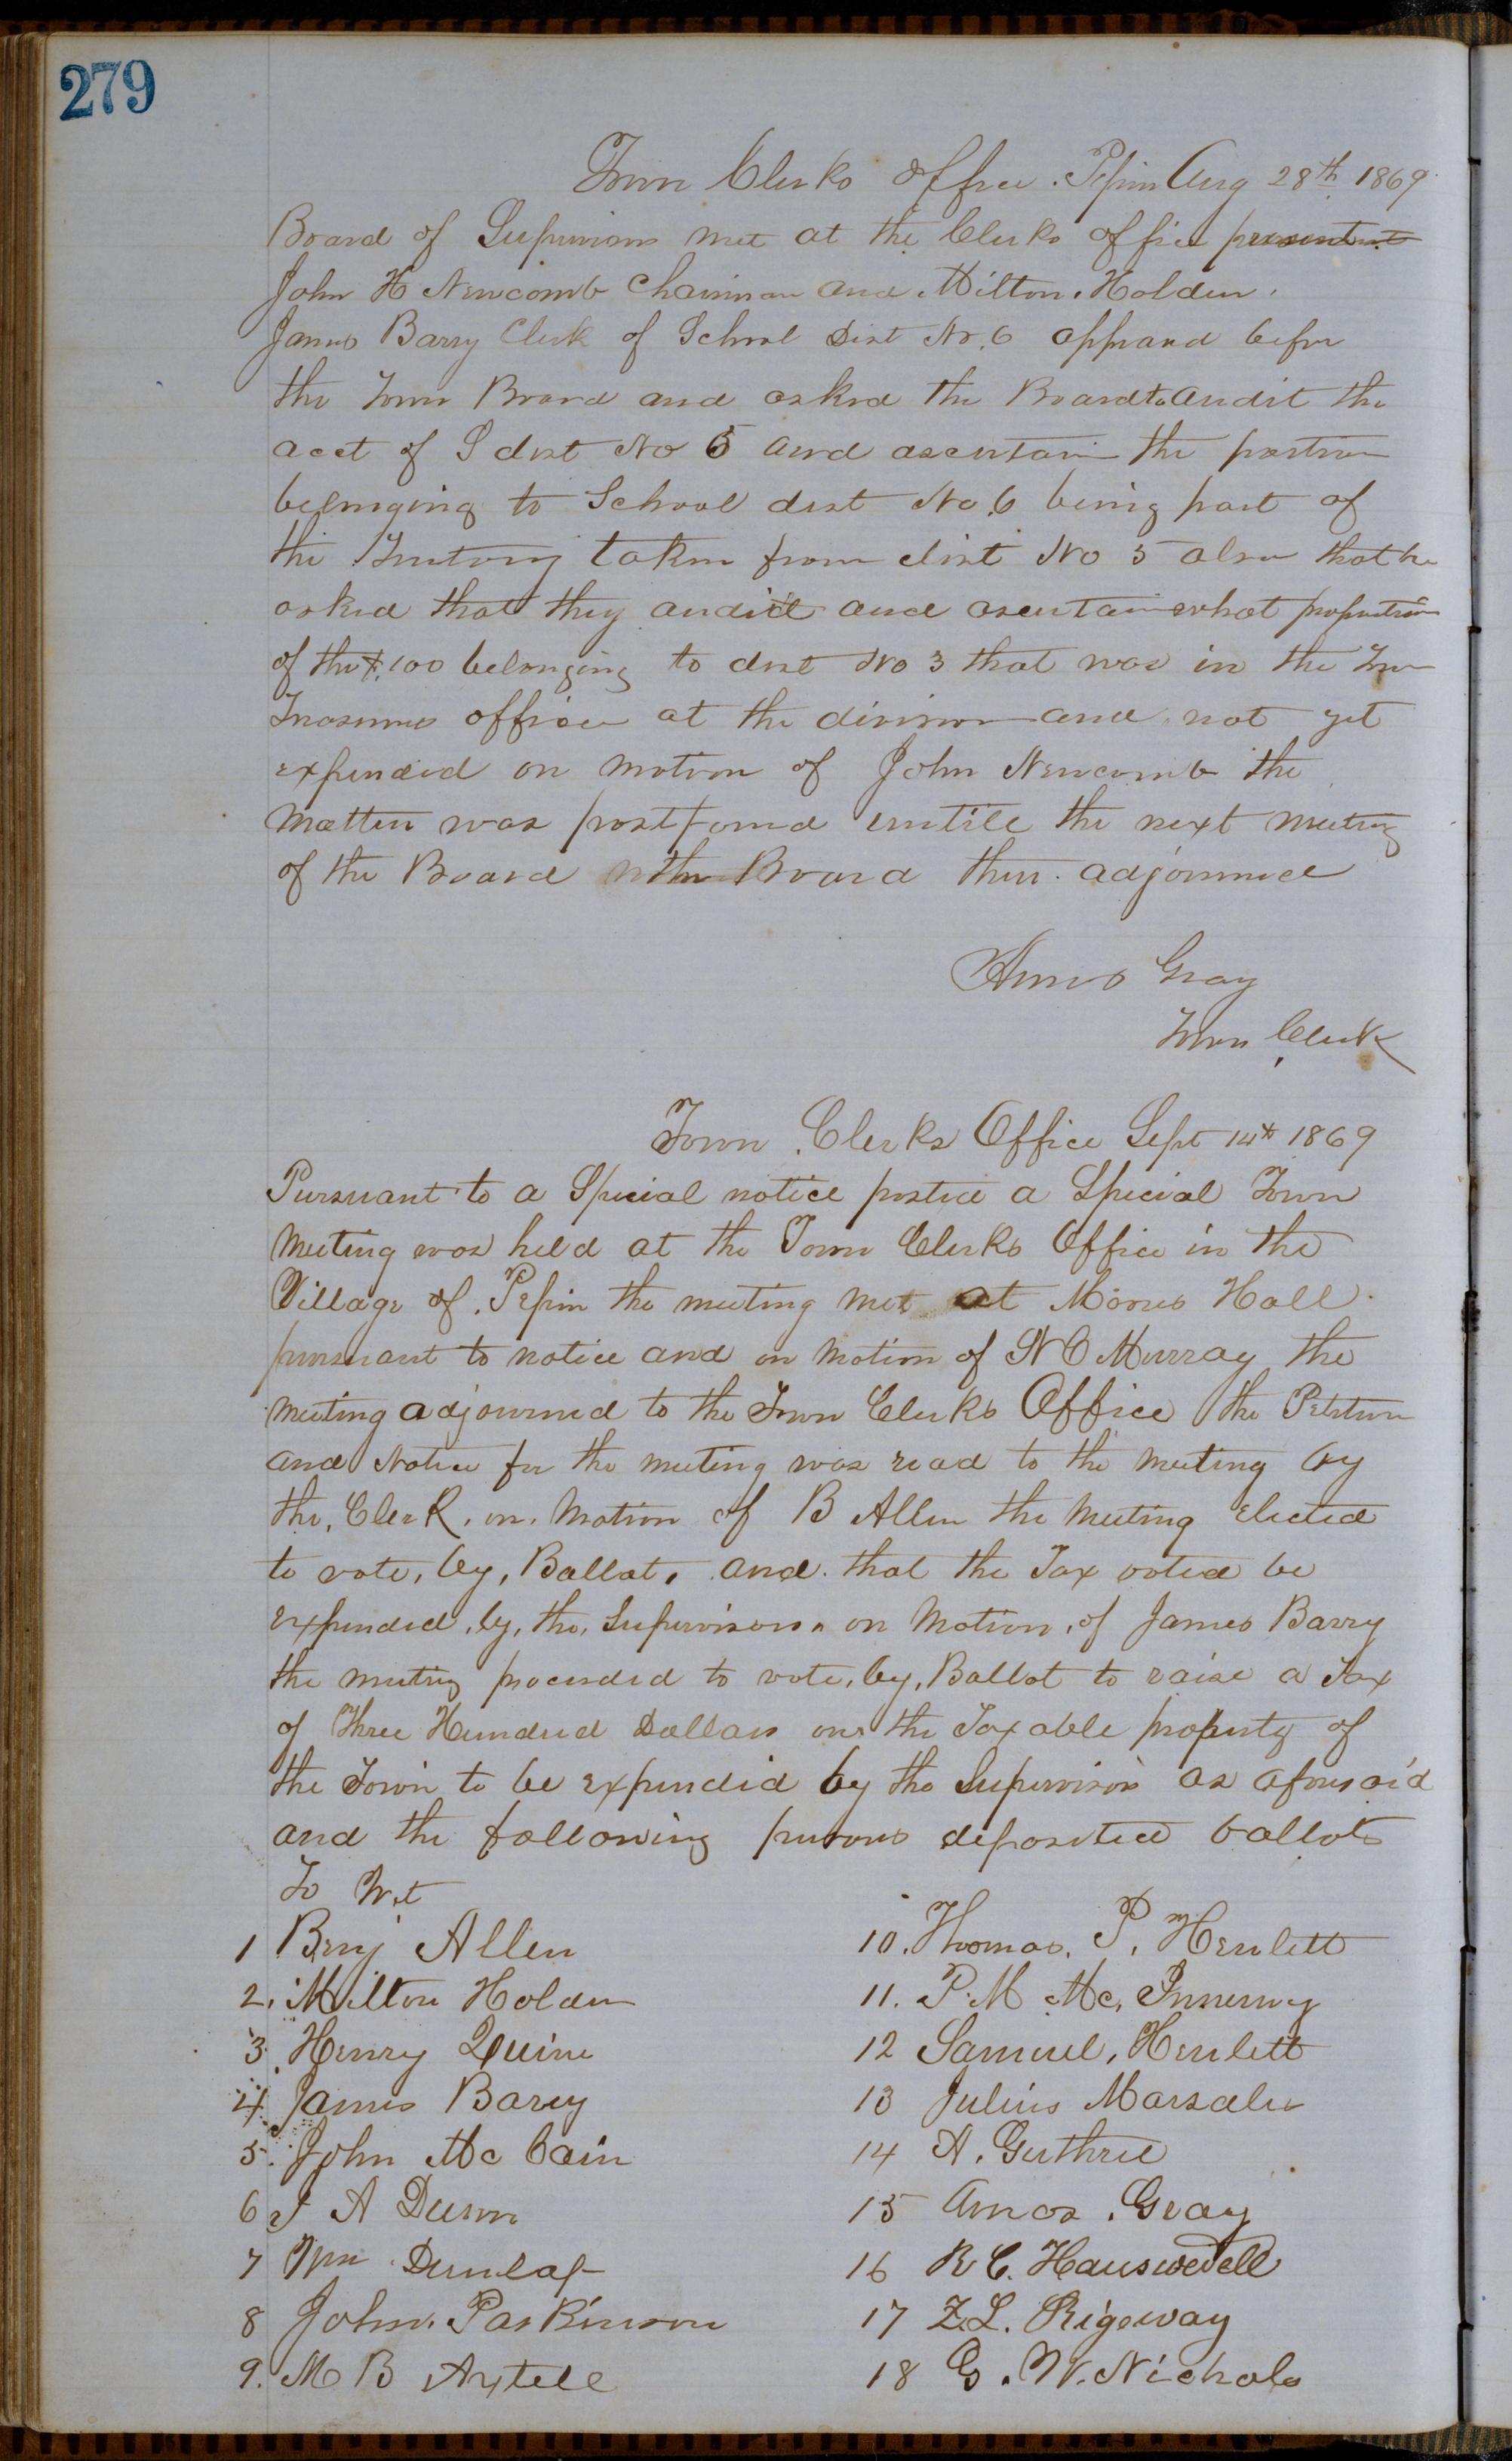 279
Town Clerks Office. Pepin Aug 28th 1869
Board of Supervisors met at the Clerks office present
John H Newcomb Chairman and Milton Holden.
James Barry Clerk of School Dist No. 6 appeard befor
the Town Board and asked the Board to audit the
acct of S dist No 5 and ascertain the portion
belonging to School dist No. 6 being part of
the Teritory taken from dist No 5 also that he
asked that they audit and ascertain what proportion
of the $.100 belonging to dist No 3 that was in the Town
Treasurers office at the division and not yet
expended on motion of John Newcomb the
Matter was postponed untill the next meeting
of the Board the Board then adjourned
Amos Gray
Town Clerk
Town Clerks Office Sept 14th 1869
Pursuant to a Special notice posted a Special Town
Meeting was held at the Town Clerks Office in the
Village of Pepin the meeting met at Mores Hall
pursuant to notice and on motion of N C Murray the
meeting adjourned to the Town Clerks Office the Petition
and Notice for the meeting was read to the meeting by
the, Clerk, on, Motion of B Allen the Meeting Elected
to vote, by, Ballot, and that the Tax voted be
Expended, by, the, Supervisors, on Motion, of James Barry
the meeting proceeded to vote, by, Ballot to raise a Tax
of Three Hundred Dollars on the Taxable property of
the Town to be Expended by the Supervisors as aforesaid
and the following persons deposited ballots
To Wit
1 Benj Allen
2. Milton Holden
3 Henry Quine
4 James Barry
5. John Mc Cain
6 A
7 Wm Dunlap
8 John. Parkinson
9. M B Axtell
10. Thomas. P. Hewlett
11. P. M Mc, Innerny
12 Samuel, Hewlett
13 Julius
14 A. Guthrie
15 Amos. Gray
16 R C. Hauswedell
17 Z. L. Rigeway
18 G. W. Nichols